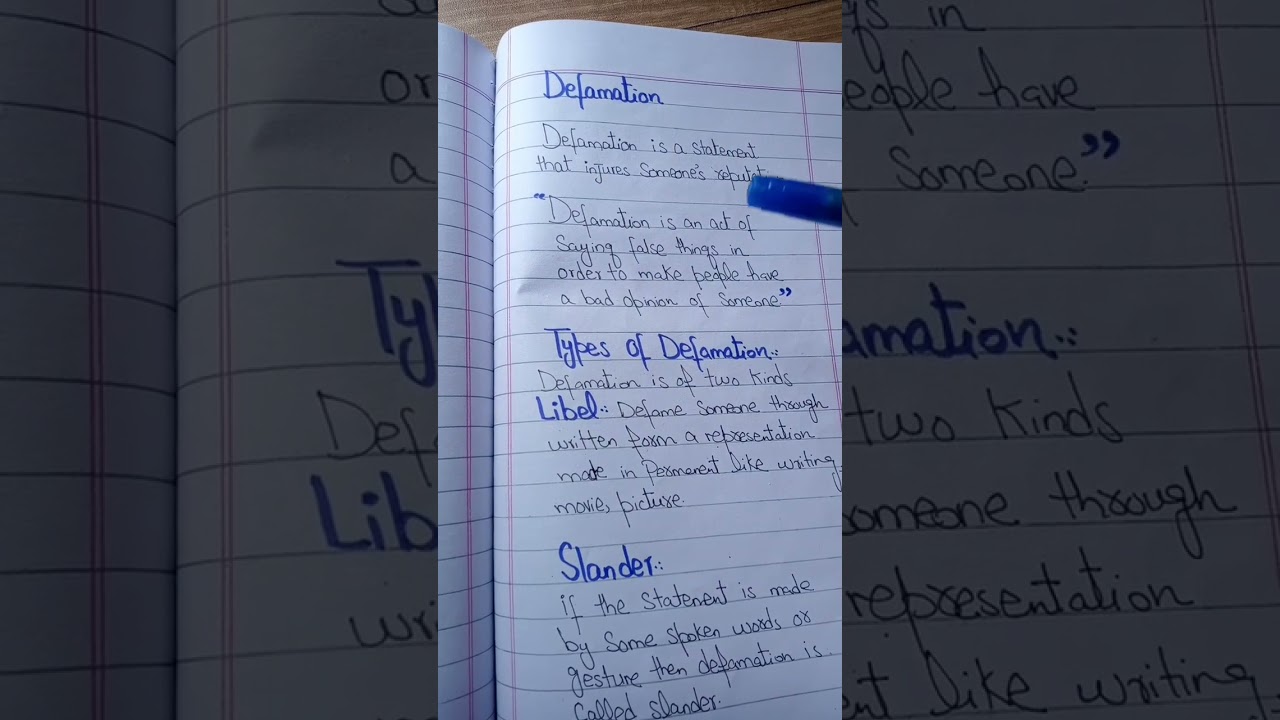 Defamation
Defamation is a statement
that injures Someone's
"Defamation is an act of
Saying false things in
order to make people have
a bad opinion of Someone"
Types of Defamation.:
Defamation is of two kinds
Libel.: Defame Someone through
written form a representation
made in Permanent like writing,
movie, picture.
Slander.:
if the Statement is made
by Some spoken words or
gesture then defamation is.
Called slander.